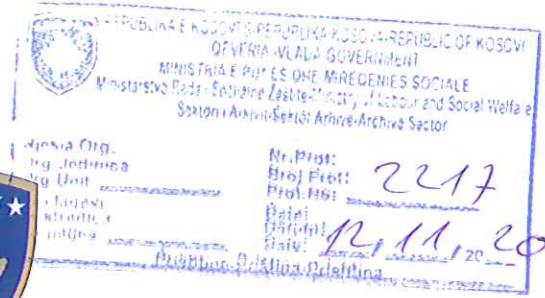 REPUBLIKA E KOSOVËS-REPUBLIKA KOSOVA-REPUBLIC OF KOSOVO
QEVERIA-VLADA-GOVERNMENT
MINISTRIA E PUNËS DHE MIRËQENIES SOCIALE
Ministarstvo Rada i Socijalne Zaštite-Ministry of Labour and Social Welfare
Sektori i Arkivit-Sektor Arhive-Archive Sector
Org.
Org. Jedinica
Org. Unit
Nr. Prot:
Broj Prot:
Prot. No: 2217
Datë:
Datum:
Date: 12 / 11 / 20 20
Prishtinë-Priština-Prishtina